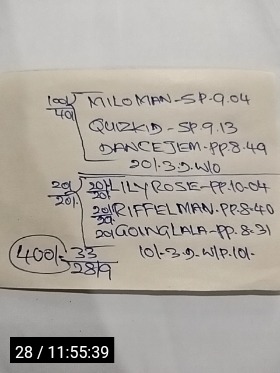 100/- MILOMAN-SP.9.04
40
QUIZKID-SP.9.13
DANCEJEM-PP.8.49
20/-3.D.W/O
20/ 20/ LILYROSE-PP.10-04
20/. 20/.
20/ RIFFELMAN.PP.8-40
20/.
20/ GOINGLALA-PP.8-31
400/- 33 10/-3-D.W/P.10/-
2819
28 / 11:55:39